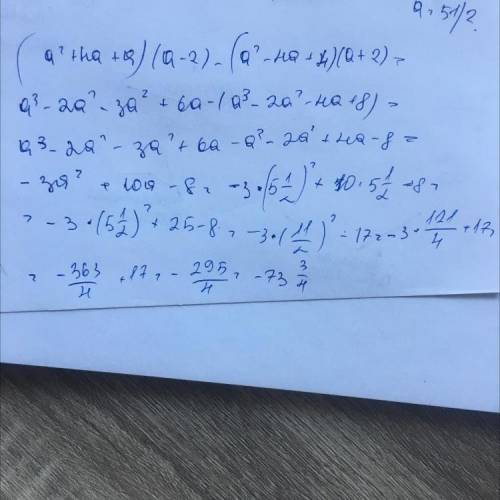 a = 5 1/2.
(a² + 4a + 4)(a - 2) - (a² - 4a + 4)(a + 2) =
a³ - 2a² - 3a² + 6a - (a³ - 2a² - 4a + 8) =
a³ - 2a² - 3a² + 6a - a³ - 2a² + 4a - 8 =
- 3a² + 10a - 8 = -3 · (5 1/2)² + 10 · 5 1/2 - 8 =
= - 3 · (5 1/2)² + 25 - 8 = -3 · (11/2)² - 17 = -3 · 121/4 + 17 =
= - 363/4 + 17 = - 295/4 = -73 3/4